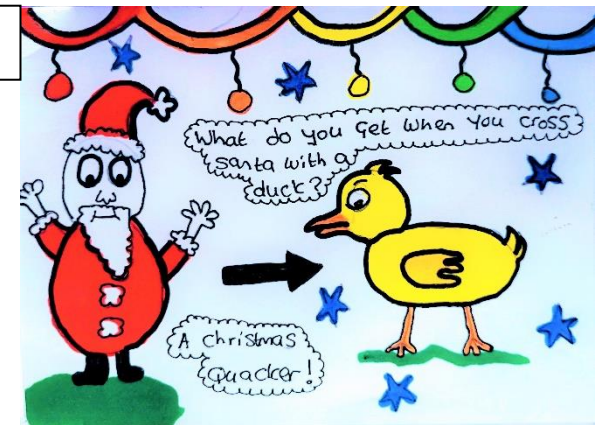 What do you get when you cross
santa with a
duck?
A christmas
Quacker!